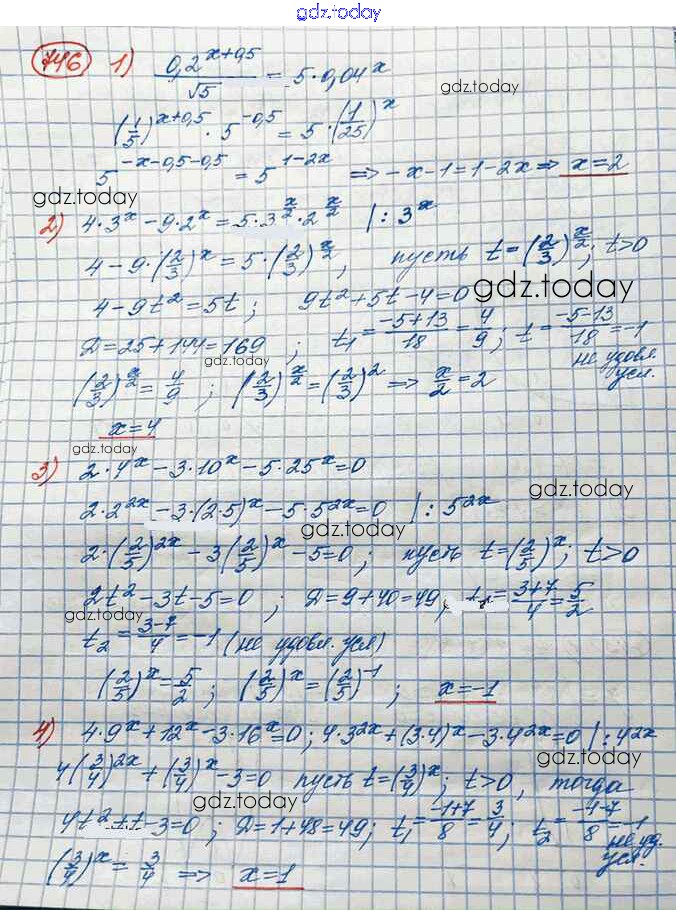 gdz.today
746 1) 0,2^(x+0,5)/√5 = 5·0,04^x
gdz.today
(1/5)^(x+0,5) · 5^(-0,5) = 5·(1/25)^x
5^(-x-0,5-0,5) = 5^(1-2x) ⇒ -x-1=1-2x ⇒ x=2
gdz.today
2) 4·3^x - 9·2^x = 5·3^(x/2)·2^(x/2) |:3^x
4-9·(2/3)^x = 5·(2/3)^(x/2), пусть t=(2/3)^(x/2); t>0
4-9t²=5t; 9t²+5t-4=0
gdz.today
D=25+144=169; t₁=(-5+13)/18=4/9; t=(-5-13)/18=-1
не удовл. усл.
gdz.today
(2/3)^(x/2)=4/9; (2/3)^(x/2)=(2/3)² ⇒ x/2=2
x=4
gdz.today
3) 2·4^x-3·10^x-5·25^x=0
gdz.today
2·2^(2x)-3·(2·5)^x-5·5^(2x)=0 |:5^(2x)
gdz.today
2·(2/5)^(2x)-3(2/5)^x-5=0; пусть t=(2/5)^x; t>0
2t²-3t-5=0; D=9+40=49, t₁=(3+7)/4=5/2
gdz.today
t₂=(3-7)/4=-1 (не удовл. усл)
(2/5)^x=5/2; (2/5)^x=(2/5)^(-1); x=-1
4) 4·9^x+12^x-3·16^x=0; 4·3^(2x)+(3·4)^x-3·4^(2x)=0 |:4^(2x)
gdz.today
4(3/4)^(2x)+(3/4)^x-3=0 пусть t=(3/4)^x; t>0, тогда
gdz.today
4t²+t-3=0; D=1+48=49; t₁=(-1+7)/8=3/4; t₂=(-1-7)/8=-1
не уд. усл.
(3/4)^x=3/4 ⇒ x=1
gdz.today